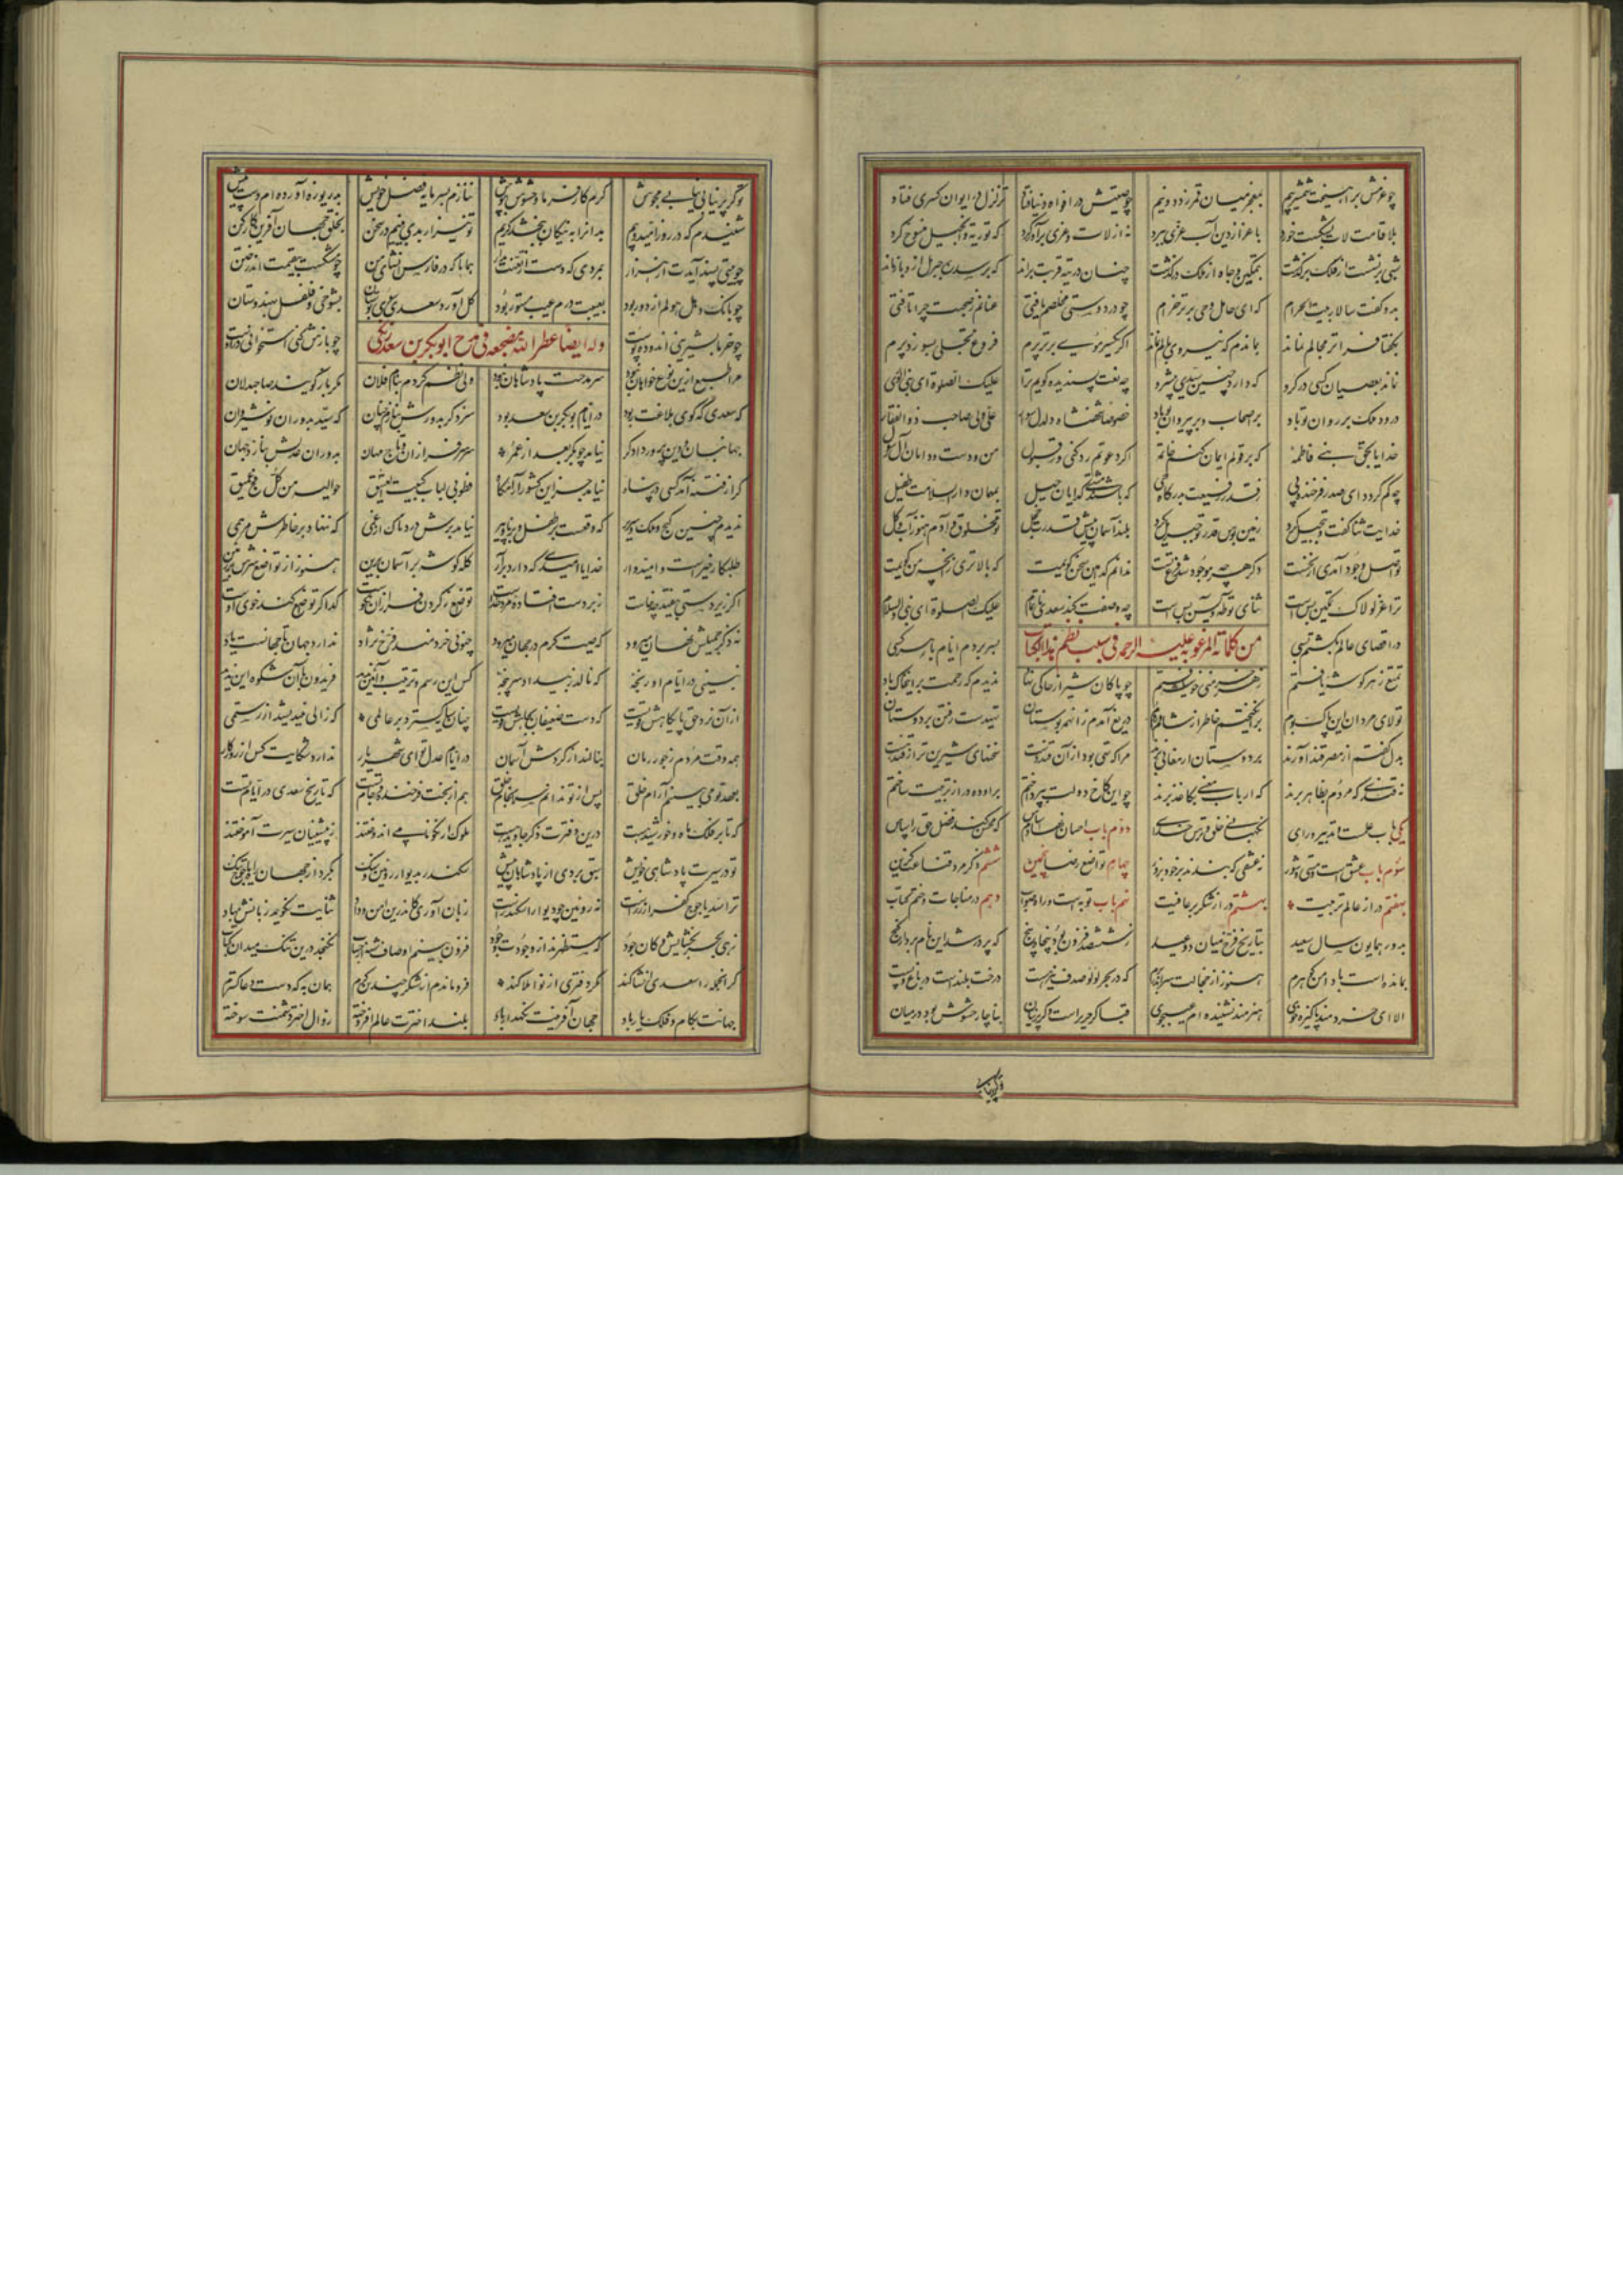 چو عزمش برآهیخت شمشیر بیم بمعجز میان قمر زد دو نیم چو صیتش در افواه دنیا فتاد تزلزل در ایوان کسری فتاد
بلا قامت لات بشکست خورد باعزاز دین آب عزی ببرد نه از لات و عزی برآورد گرد که توریة و انجیل منسوخ کرد
شبی برنشست از فلک برگذشت بتمکین و جاه از ملک درگذشت چنان در تیه قربت براند که بر سدره جبریل ازو بازماند
بدو گفت سالار بیت الحرام که ای حامل وحی برتر خرام چو در دوستی مخلصم یافتی عنانم ز صحبت چرا تافتی
بگفتا فراتر مجالم نماند بماندم که نیروی بالم نماند اگر یکسر موی برتر پرم فروغ تجلی بسوزد پرم
نماند بعصیان کسی در گرو که دارد چنین سیدی پیشرو چه نعت پسندیده گویم ترا علیک الصلوة ای نبی الوری
درود ملک بر روان تو باد بر اصحاب و بر پیروان تو باد خصوصا شهنشاه دلدل سوار علی ولی صاحب ذوالفقار
خدایا بحق بنی فاطمه که بر قولم ایمان کنم خاتمه اگر دعوتم رد کنی ور قبول من و دست و دامان آل رسول
چه کم گردد ای صدر فرخنده پی ز قدر رفیعت بدرگاه حی که باشند مشتی گدایان خیل بمهمان دارالسلامت طفیل
خدایت ثنا گفت و تبجیل کرد زمین بوس قدر تو جبریل کرد بلند آسمان پیش قدرت خجل تو مخلوق و آدم هنوز آب و گل
تو اصل وجود آمدی از نخست دگر هرچه موجود شد فرع تست ندانم کدامین سخن گویمت که بالاتری زانچه من گویمت
ترا عز لولاک تمکین بس است ثنای تو طه و یس بس است چه وصفت کند سعدی ناتمام علیک الصلوة ای نبی والسلام
در اقصای عالم بگشتم بسی من کلماته المرغوبه علیه الرحمه فی سبب نظم هذا الکتاب بسر بردم ایام با هر کسی
تمتع ز هر گوشه یافتم ز هر خرمنی خوشه یافتم چو پاکان شیراز خاکی نهاد ندیدم که رحمت برین خاک باد
تولای مردان این پاک بوم برانگیختم خاطر از شام و روم دریغ آمدم زانهمه بوستان تهیدست رفتن بر دوستان
بدل گفتم از مصر قند آورند بر دوستان ارمغانی برند مرا گر تهی بود از آن قند دست سخنهای شیرین تر از قند هست
نه قندی که مردم بظاهر برند که ارباب معنی بکاغذ برند چو این کاخ دولت بپرداختم برو ده در از تربیت ساختم
یکی باب عدلست و تدبیر و رای نگهبانی خلق و ترس خدای دوم باب احسان نهادم اساس که محسن کند فضل حق را سپاس
سوم باب عشق است و مستی و شور نه عشقی که بندند بر خود بزور چهارم تواضع رضا پنجمین ششم ذکر مرد قناعت گزین
بهفتم در از عالم تربیت بهشتم در از شکر بر عافیت نهم باب توبه است و راه صواب دهم در مناجات و ختم کتاب
بدور همایون سال سعید بتاریخ فرخ میان دو عید ز ششصد فزون بود پنجاه و پنج که پر در شد این نام بردار گنج
بمانده است با دامن گوهرم هنوز از خجالت سر اندر برم که در بحر لؤلؤ صدف نیز هست درخت بلند است در باغ و پست
الا ای خردمند پاکیزه خوی هنرمند نشنیده ام عیب جوی قبا گر حریر است و گر پرنیان بناچار حشوش بود در میان
و گر پرنیانی
و گر پرنیانی نیابی مجوش کرم کار فرما و حشوش بپوش ننازم بسرمایه فضل خویش بدریوزه آورده ام دست پیش
شنیدم که در روز امید و بیم بدانرا به نیکان ببخشد کریم تو نیز ار بدی بینیم در سخن بخلق جهان آفرین کار کن
چو بیتی پسند آیدت از هزار بمردی که دست از تعنت بدار همانا که در فارس انشای من چو مشکست بی قیمت اندر ختن
چو بانگ دهل هولم از دور بود بغیبت درم عیب مستور بود گل آورد سعدی سوی بوستان بشوخی و فلفل بهندوستان
چو خرما بشیرینی اندوده پوست وله ایضا عطر الله مضجعه فی مدح ابوبکر بن سعد زنگی چو بازش کنی استخوانی دروست
مرا طبع ازین نوع خواهان نبود سر مدحت پادشاهان نبود ولی نظم کردم بنام فلان مگر باز گویند صاحبدلان
که سعدی که گوی بلاغت ربود در ایام بوبکر بن سعد بود سزد گر بدورش بنازم چنان که سید بدوران نوشیروان
جهانبان و دین پرور و دادگر نیامد چو بوبکر بعد از عمر سر سرفرازان و تاج مهان بدوران عدلش بناز ای جهان
گر از فتنه آید کسی در پناه نیابد جز این کشور آرامگاه فطوبی لباب کبیت العتیق حوالیه من کل فج عمیق
ندیدم چنین گنج و ملک و سریر که وقفست بر طفل و برنا و پیر نیامد برش دردناک از غمی که ننهاد بر خاطرش مرهمی
طلبکار خیر است و امیدوار خدایا امیدی که دارد برآر کله گوشه بر آسمان برین هنوز از تواضع سرش بر زمین
اگر زیردستی بیفتد چه خاست زبردست افتاده مرد خداست تواضع ز گردن فرازان نکوست گدا گر تواضع کند خوی اوست
نه ذکر جمیلش نهان میرود که صیت کرم در جهان میرود چنوئی خردمند فرخ نژاد ندارد جهان تا جهانست یاد
نبینی در ایام او رنجه که نالد ز بیداد سرپنجه کس این رسم و ترتیب و آئین ندید فریدون با آن شکوه این ندید
از آن نزد حق پایگاهش قویست که دست ضعیفان بجاهش قویست چنان سایه گسترد بر عالمی که زالی نیندیشد از رستمی
همه وقت مردم ز جور زمان بنالند از گردش آسمان در ایام عدل تو ای شهریار ندارد شکایت کس از روزگار
بعهد تو می بینم آرام خلق پس از تو ندانم سرانجام خلق هم از بخت فرخنده فرجام تست که تاریخ سعدی در ایام تست
که تا بر فلک ماه و خورشید هست درین دفترت ذکر جاوید هست ملوک ار نکونامی اندوختند ز پیشینیان سیرت آموختند
تو در سیرت پادشاهی خویش سبق بردی از پادشاهان پیش سکندر بدیوار روئین و سنگ بکرد از جهان راه یاجوج تنگ
ترا سد یاجوج کفر از زرست نه روئین چو دیوار اسکندرست زبان آوری کاندرین امن و داد ثنایت نگوید زبانش مباد
زهی بحر بخشایش و کان جود که مستظهرند از وجودت وجود فزون بینم اوصاف شه از حساب نگنجد درین تنگ میدان کتاب
گر آنجمله را سعدی انشا کند مگر دفتری از نو املا کند فرو ماندم از شکر چندین کرم همان به که دست دعا گسترم
جهانت بکام و فلک یار باد جهان آفرینت نگهدار باد بلند اخترت عالم افروخته زوال اختر دشمنت سوخته